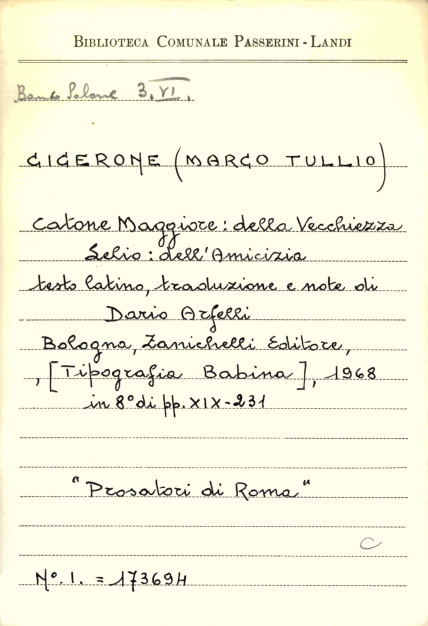 BIBLIOTECA COMUNALE PASSERINI-LANDI
Banco Salone 3.VI.
CICERONE (MARCO TULLIO)
Catone Maggiore: della Vecchiezza
Lelio: dell'Amicizia
testo latino, traduzione e note di
Dario Arfelli
Bologna, Zanichelli Editore,
, [Tipografia Babina], 1968
in 8° di pp. XIX-231
"Prosatori di Roma"
C
N°. I. = 173694